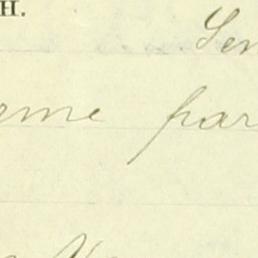 H.
Sen
eme par